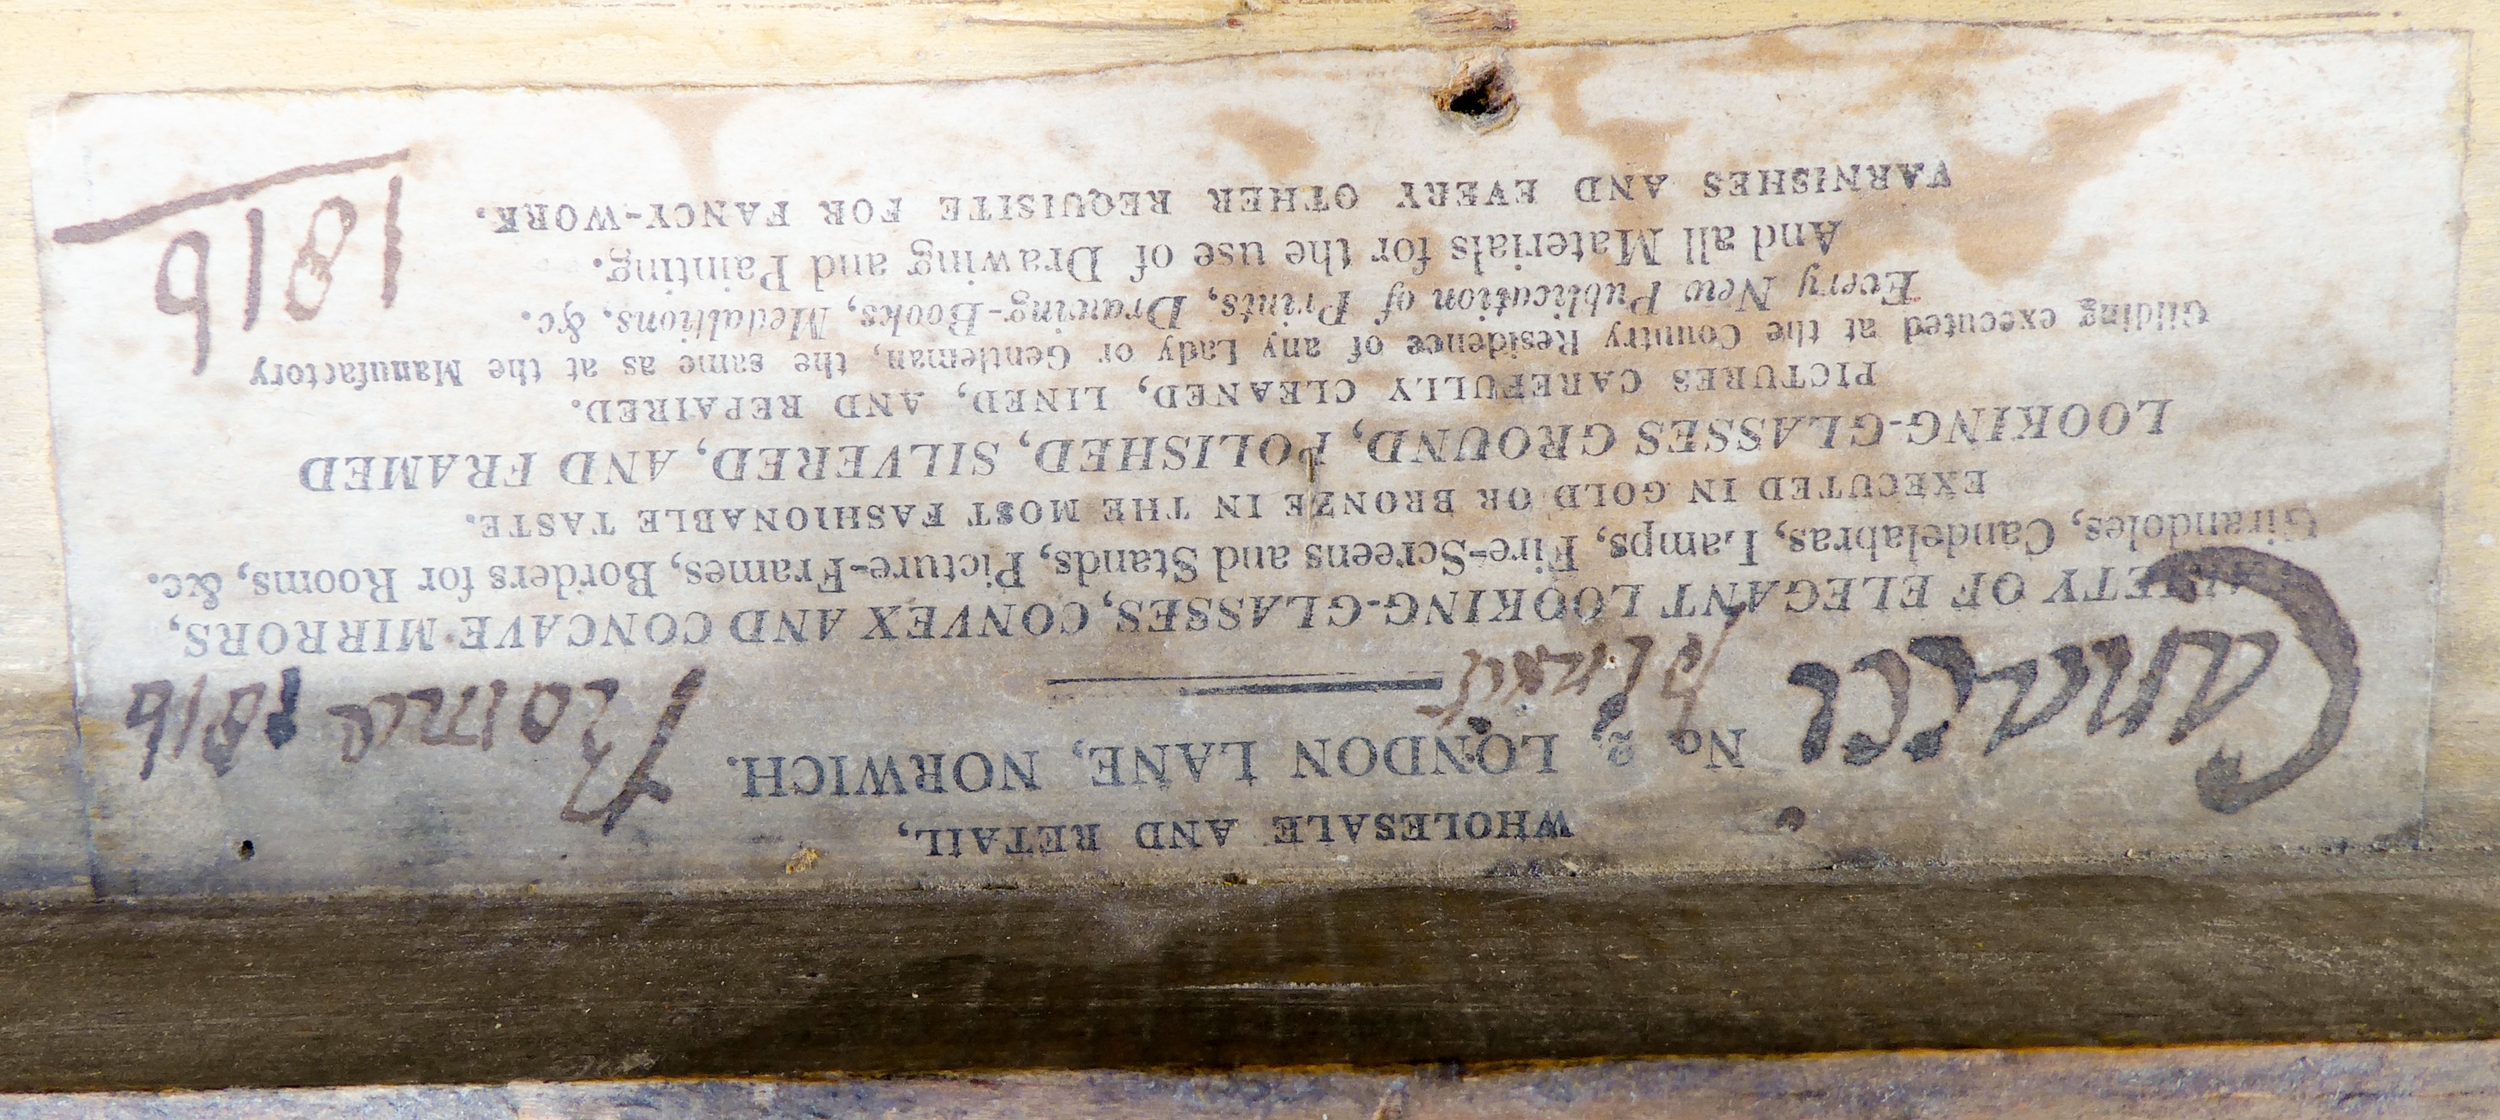 WHOLESALE AND RETAIL,
No. 2, LONDON LANE, NORWICH.
1816
VARIETY OF ELEGANT LOOKING-GLASSES, CONVEX AND CONCAVE MIRRORS,
Girandoles, Candelabras, Lamps, Fire-Screens and Stands, Picture-Frames, Borders for Rooms, &c.
EXECUTED IN GOLD OR BRONZE IN THE MOST FASHIONABLE TASTE.
LOOKING-GLASSES GROUND, POLISHED, SILVERED, AND FRAMED
PICTURES CAREFULLY CLEANED, LINED, AND REPAIRED.
Gilding executed at the Country Residence of any Lady or Gentleman, the same as at the Manufactory
Every New Publication of Prints, Drawing-Books, Medallions, &c.
And all Materials for the use of Drawing and Painting.
VARNISHES AND EVERY OTHER REQUISITE FOR FANCY-WORK.
1816